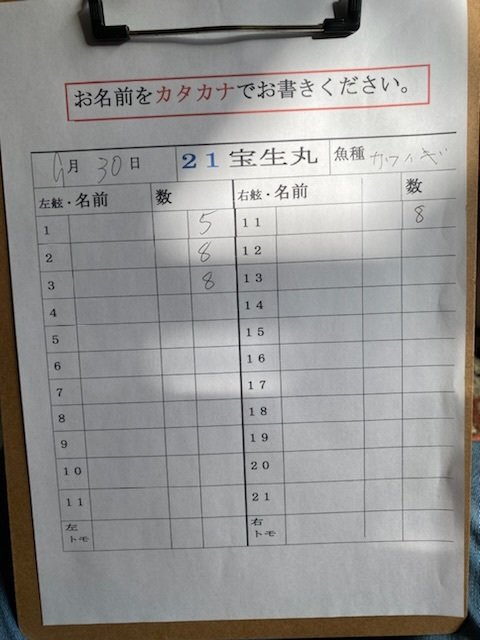 お名前をカタカナでお書きください。
9月30日 21宝生丸 魚種 カワハギ
左舷・名前 数 右舷・名前 数
1 5 11 8
2 8 12
3 8 13
4 14
5 15
6 16
7 17
8 18
9 19
10 20
11 21
左トモ 右トモ